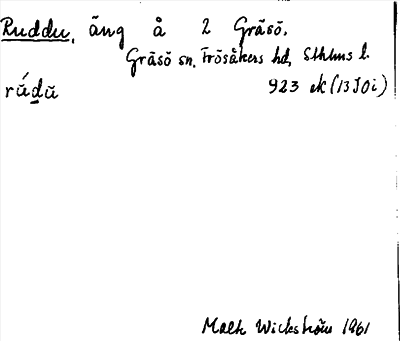 Ruddu, äng å 2 Gräsö.
Gräsö sn. Frösåkers hd, Sthlms l.
rŭ́d̲ŭ 923 ek (13J0i)
Mats Wickström 1961